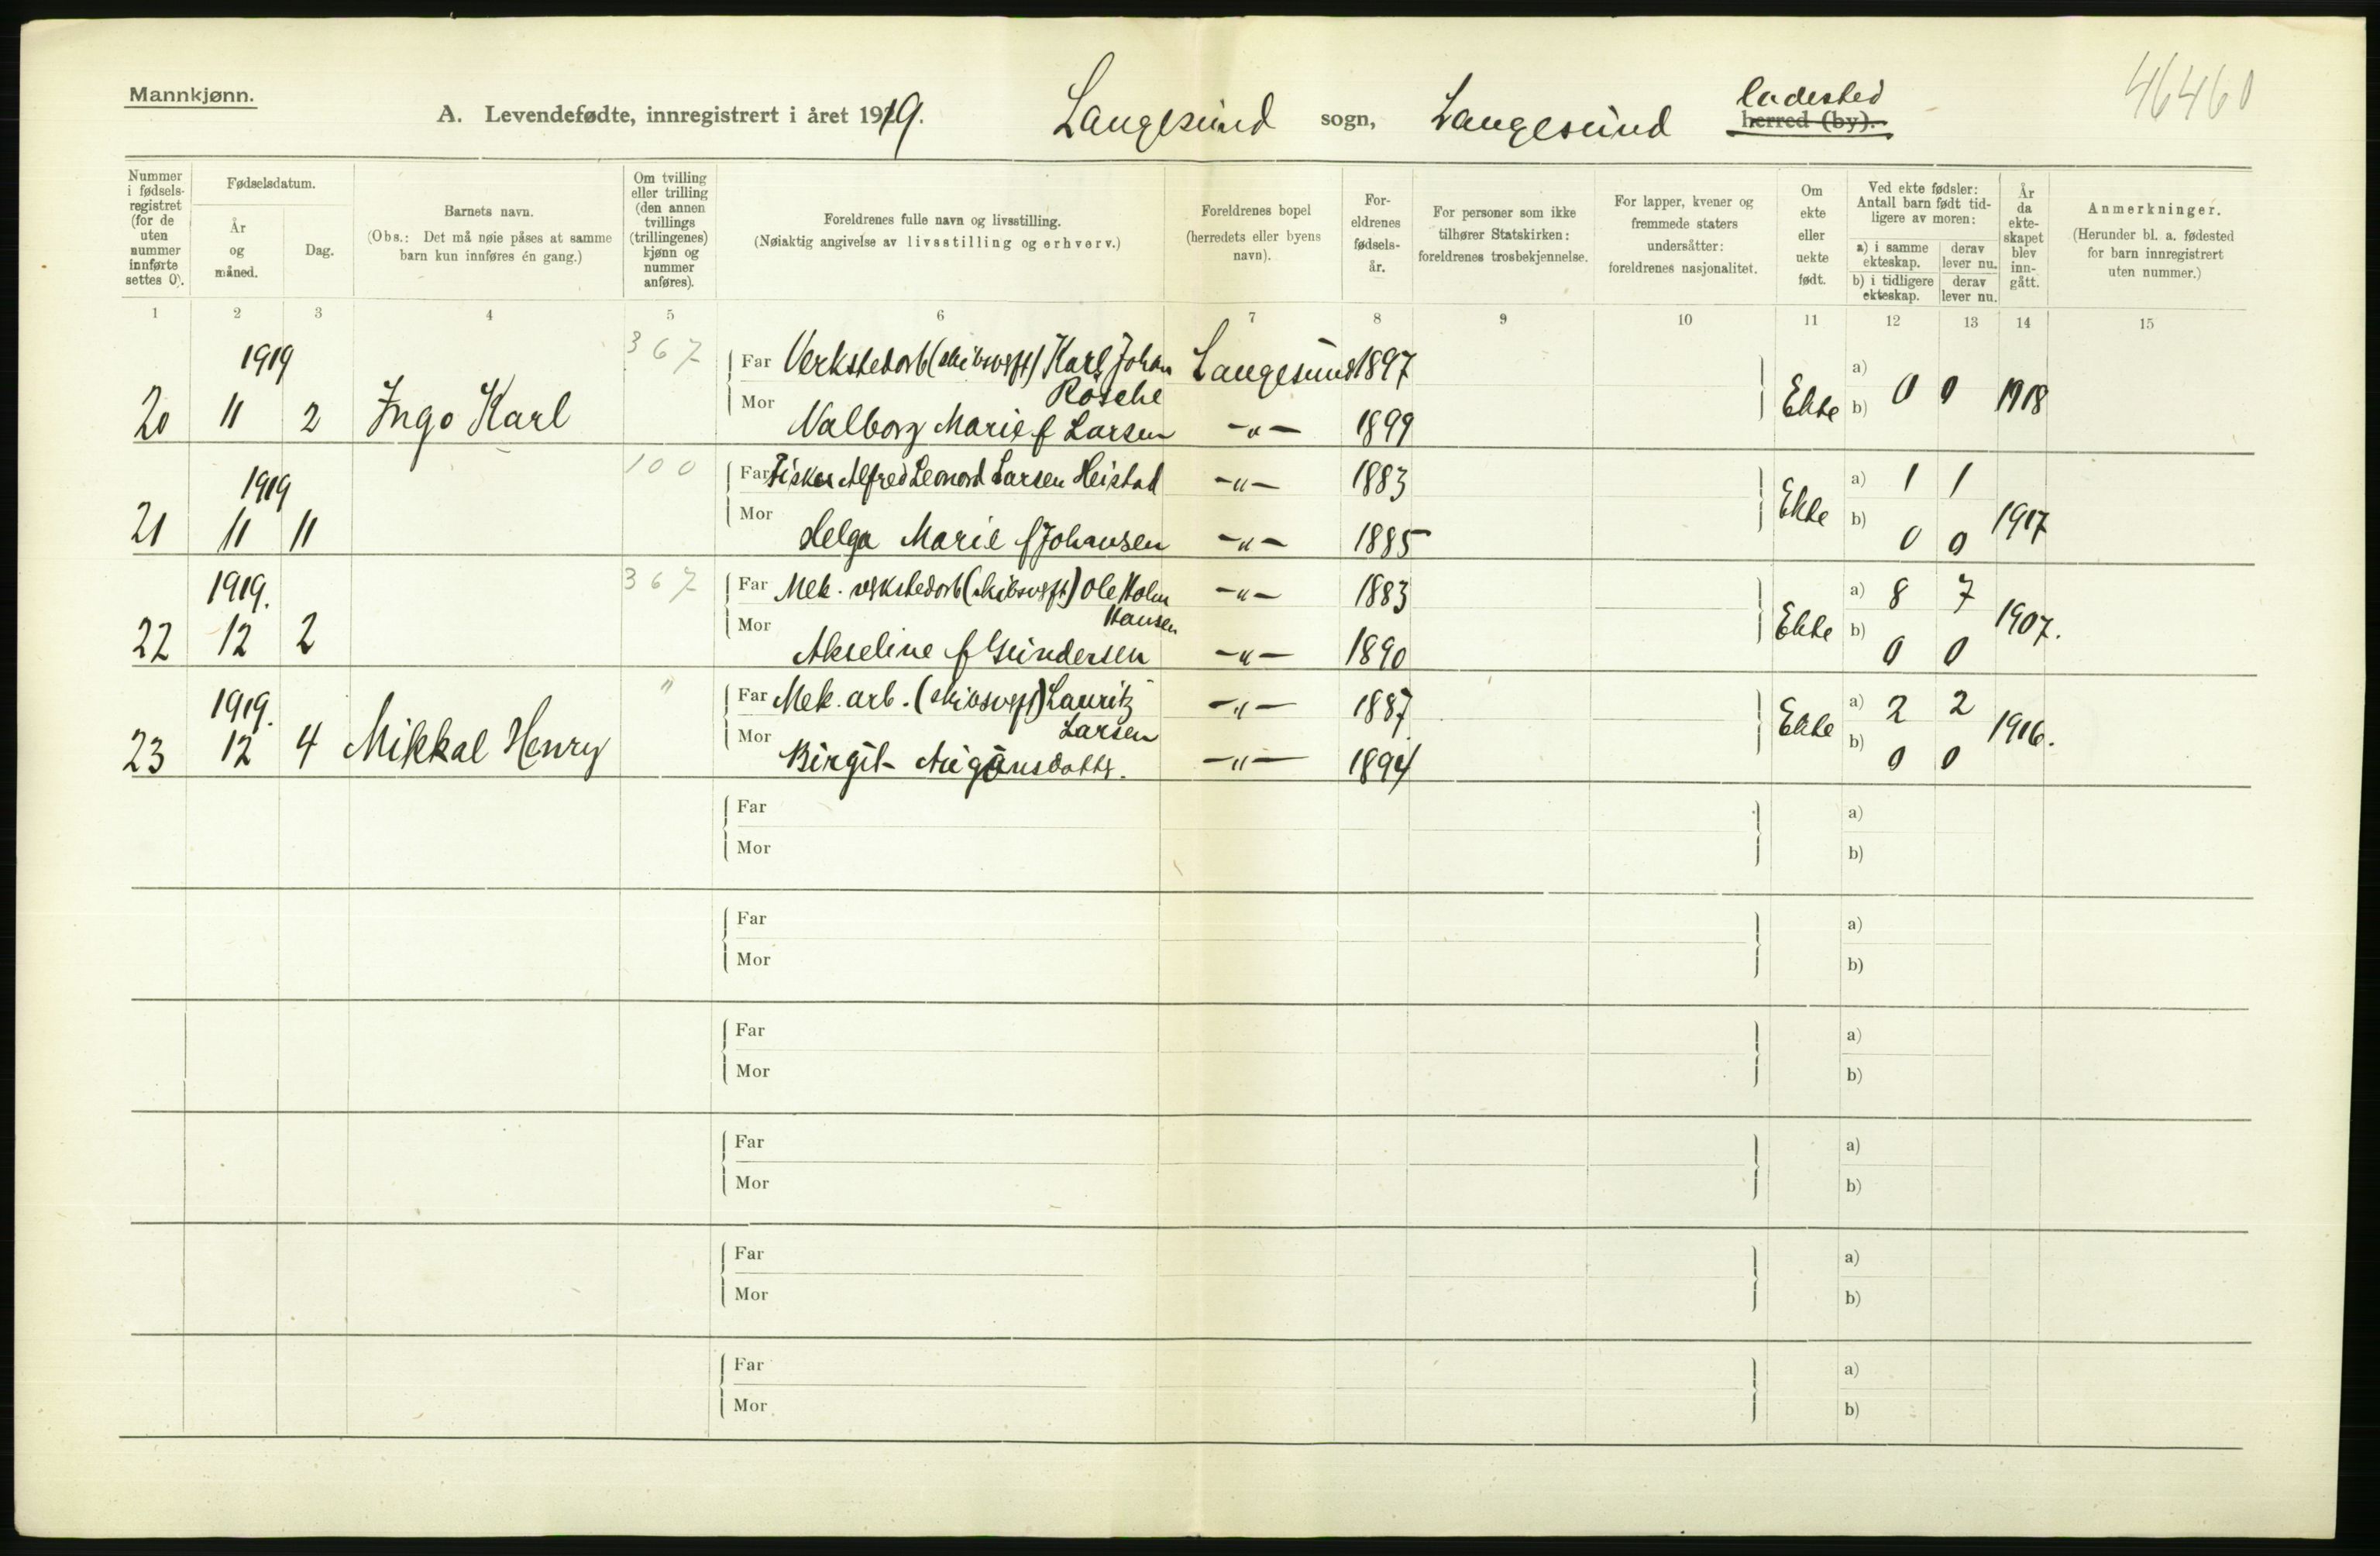 Mannkjønn.
A. Levendefødte, innregistrert i året 1919.
Langesund sogn, Langesund ladested herred (by).
46460
Nummer i fødselsregistret (for de uten nummer innførte settes 0).
Fødselsdatum.
År og måned.
Dag.
Barnets navn.
(Obs.: Det må nøie påses at samme barn kun innføres én gang.)
Om tvilling eller trilling (den annen tvillings (trillingenes) kjønn og nummer anføres).
Foreldrenes fulle navn og livsstilling.
(Nøiaktig angivelse av livsstilling og erhverv.)
Foreldrenes bopel (herredets eller byens navn).
Foreldrenes fødselsår.
For personer som ikke tilhører Statskirken: foreldrenes trosbekjennelse.
For lapper, kvener og fremmede staters undersåtter: foreldrenes nasjonalitet.
Om ekte eller uekte født.
Ved ekte fødsler: Antall barn født tidligere av moren:
a) i samme ekteskap. derav lever nu.
b) i tidligere ekteskap. derav lever nu.
År da ekteskapet blev inngått.
Anmerkninger.
(Herunder bl. a. fødested for barn innregistrert uten nummer.)
1 2 3 4 5 6 7 8 9 10 11 12 13 14 15
1919 367 Far Verkstedarb (skibsverft) Karl Johan Langesund 1897 a)
Rosche
20 11 2 Ingo Karl Mor Valborg Marie f Larsen -"- 1899 Ekte b) 0 0 1918
1919 100 Far Fisker Alfred Leonard Larsen Heistad -"- 1883 a) 1 1
21 11 11 Mor Helga Marie f Johansen -"- 1885 Ekte b) 0 0 1917
1919. 367 Far Mek. verkstedarb (skibsverft) Ole Holm -"- 1883 a) 8 7
Hansen
22 12 2 Mor Akseline f Gundersen -"- 1890 Ekte b) 0 0 1907.
1919. " Far Mek. arb. (skibsverft) Lauritz -"- 1887 a) 2 2
Larsen
23 12 4 Mikkal Henry Mor Birgit -"- 1894 Ekte b) 0 0 1916.
Far a)
Mor b)
Far a)
Mor b)
Far a)
Mor b)
Far a)
Mor b)
Far a)
Mor b)
Far a)
Mor b)